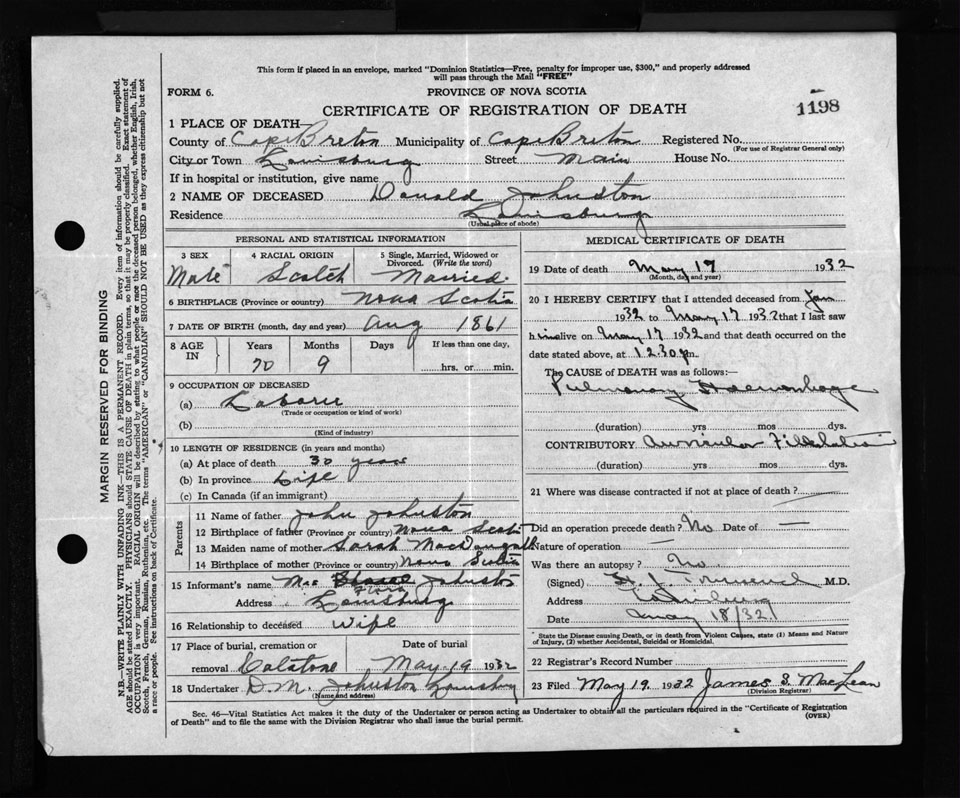 This form if placed in an envelope, marked "Dominion Statistics—Free, penalty for improper use, $300," and properly addressed
will pass through the Mail "FREE"
FORM 6.
PROVINCE OF NOVA SCOTIA
CERTIFICATE OF REGISTRATION OF DEATH
1198
1 PLACE OF DEATH—
County of Cape Breton Municipality of Cape Breton Registered No.
(For use of Registrar General only)
City or Town Louisburg Street Main House No.
If in hospital or institution, give name
2 NAME OF DECEASED Donald Johnston
Residence Louisburg
(Usual place of abode)
PERSONAL AND STATISTICAL INFORMATION
3 SEX 4 RACIAL ORIGIN 5 Single, Married, Widowed or Divorced. (Write the word)
Male Scotch Married
6 BIRTHPLACE (Province or country) Nova Scotia
7 DATE OF BIRTH (month, day and year) Aug 1861
8 AGE IN Years Months Days If less than one day,
70 9 hrs. or min.
9 OCCUPATION OF DECEASED
(a) Laborer
(Trade or occupation or kind of work)
(b)
(Kind of industry)
10 LENGTH OF RESIDENCE (in years and months)
(a) At place of death 30 years
(b) In province Life
(c) In Canada (if an immigrant)
Parents
11 Name of father John Johnston
12 Birthplace of father (Province or country) Nova Scotia
13 Maiden name of mother Sarah MacDougall
14 Birthplace of mother (Province or country) Nova Scotia
15 Informant's name Flora Johnston
Address Louisburg
16 Relationship to deceased Wife
17 Place of burial, cremation or removal Date of burial
May 19 1932
18 Undertaker D.M. Johnston Louisburg
(Name and address)
MEDICAL CERTIFICATE OF DEATH
19 Date of death May 17 1932
(Month, day and year)
20 I HEREBY CERTIFY that I attended deceased from Jan
1932 to May 17 1932 that I last saw
him alive on May 17 1932 and that death occurred on
date stated above, at 12.30 p.m.
The CAUSE of DEATH was as follows:—
Pulmonary Haemorrhage
(duration) yrs mos dys.
CONTRIBUTORY Auricular Fibrillation
(duration) yrs. mos. dys.
21 Where was disease contracted if not at place of death?
Did an operation precede death? No Date of —
Nature of operation —
Was there an autopsy? No
(Signed) M.D.
Address Louisburg
Date May 18/32
* State the Disease causing Death, or in death from Violent Causes, state (1) Means and Nature
of Injury, (2) whether Accidental, Suicidal or Homicidal.
22 Registrar's Record Number
23 Filed May 19 1932 James S. MacLean
(Division Registrar)
Sec. 46—Vital Statistics Act makes it the duty of the Undertaker or person acting as Undertaker to obtain all the particulars required in the "Certificate of Registration
of Death" and to file the same with the Division Registrar who shall issue the burial permit.
(OVER)
MARGIN RESERVED FOR BINDING
N.B.—WRITE PLAINLY WITH UNFADING INK—THIS IS A PERMANENT RECORD. Every item of information should be carefully supplied.
AGE should be stated EXACTLY. PHYSICIANS should STATE CAUSE OF DEATH in plain terms, so that it may be properly classified. Exact statement of
OCCUPATION is very important. RACIAL ORIGIN will be described by stating to what people or race the deceased person belonged, whether English, Irish,
Scotch, French, German, Russian, Ruthenian, etc. The terms "AMERICAN" or "CANADIAN" SHOULD NOT BE USED as they express citizenship but not
a race or people. See instructions on back of Certificate.